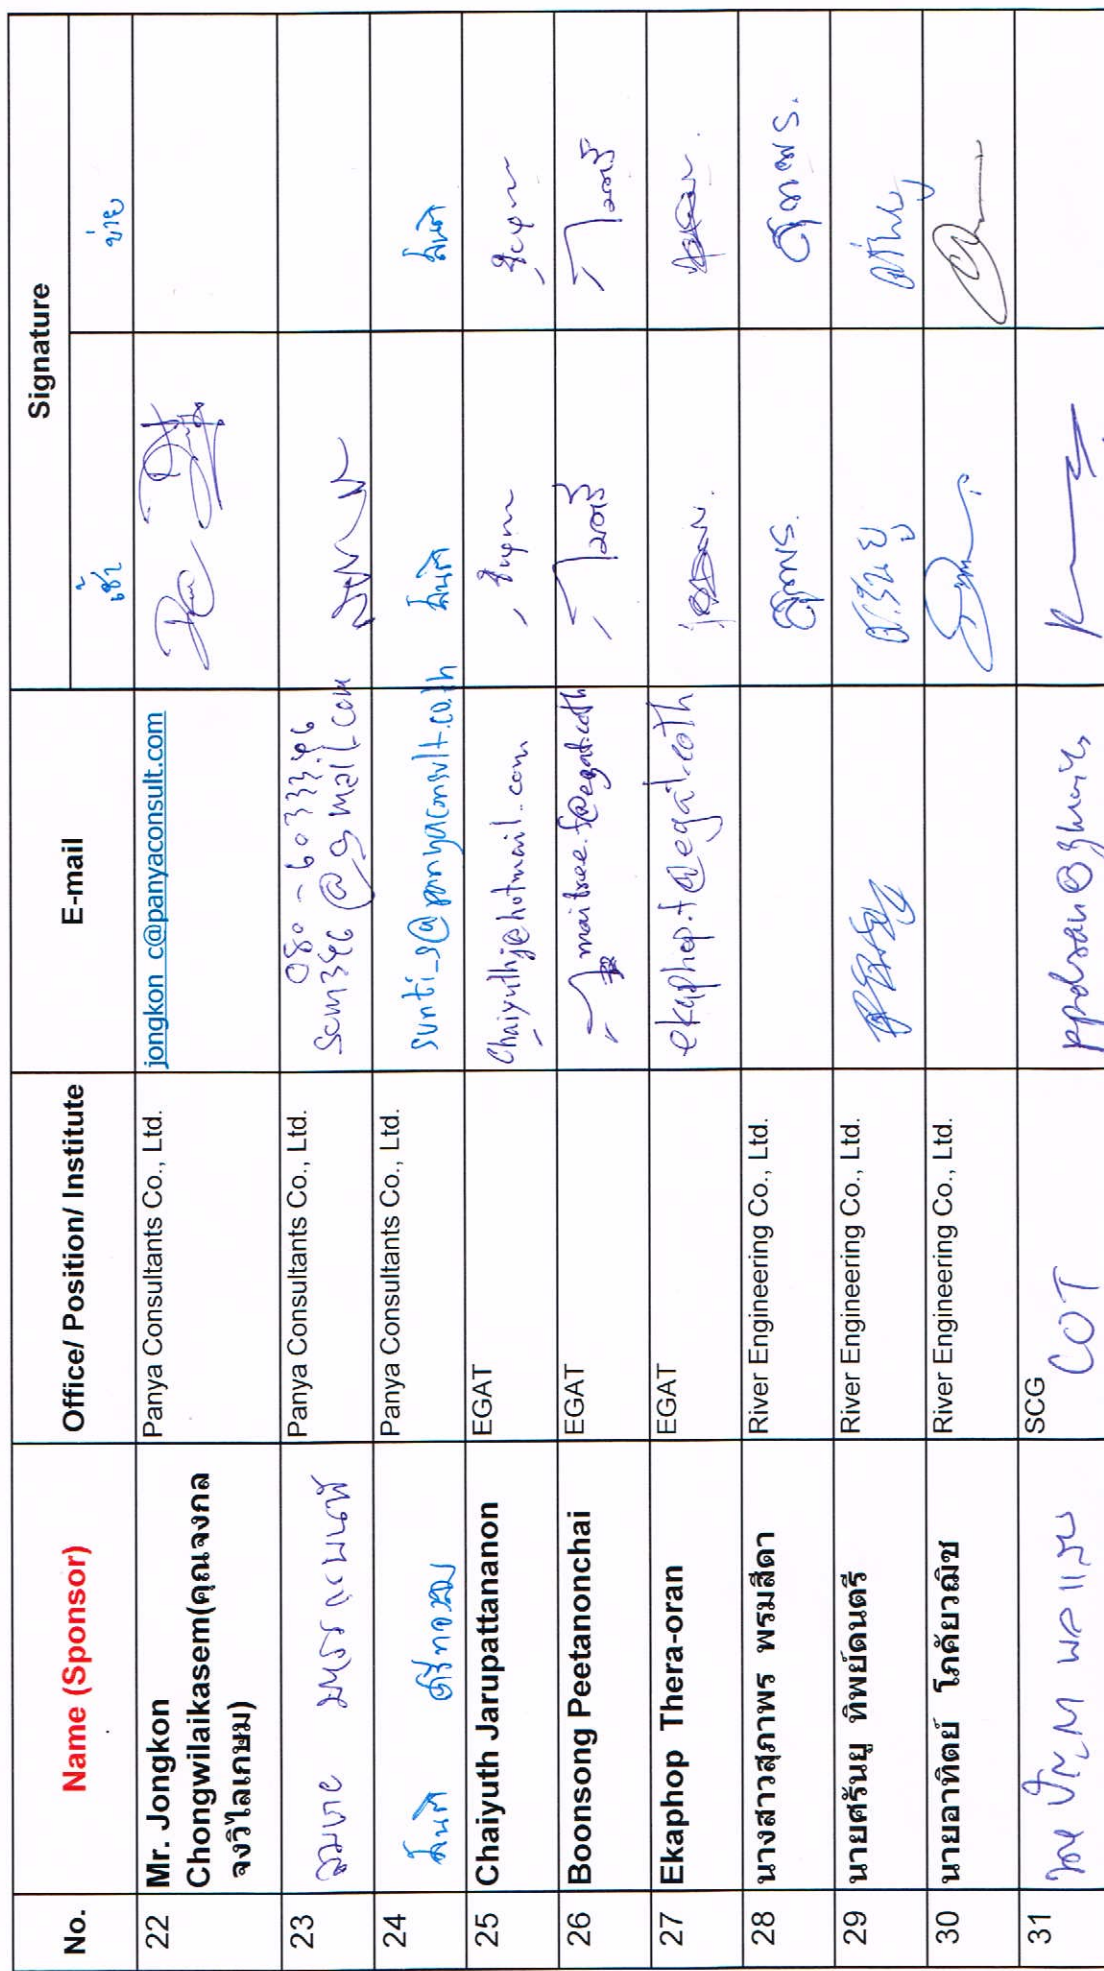 No. Name (Sponsor) Office/ Position/ Institute E-mail Signature
เช้า บ่าย
22 Mr. Jongkon Panya Consultants Co., Ltd. jongkon_c@panyaconsult.com
Chongwilaikasem(คุณจงกล
จงวิไลเกษม)
23 Panya Consultants Co., Ltd. 080-6033346
scm346@gmail.com
24 สันติ Panya Consultants Co., Ltd. sunti_s@panyaconsult.co.th สันติ สันติ
25 Chaiyuth Jarupattananon EGAT Chaiyuthj@hotmail.com
26 Boonsong Peetanonchai EGAT maitree.f@egat.co.th ไมตรี ไมตรี
27 Ekaphop Thera-oran EGAT ekaphop.t@egat.co.th
28 นางสาวสุภาพร พรมสีดา River Engineering Co., Ltd. สุภาพร. สุภาพร.
29 นายศรันยู ทิพย์ดนตรี River Engineering Co., Ltd. ศรันยู ศรันยู
30 นายอาทิตย์ โภคัยวณิช River Engineering Co., Ltd.
31 SCG
COT